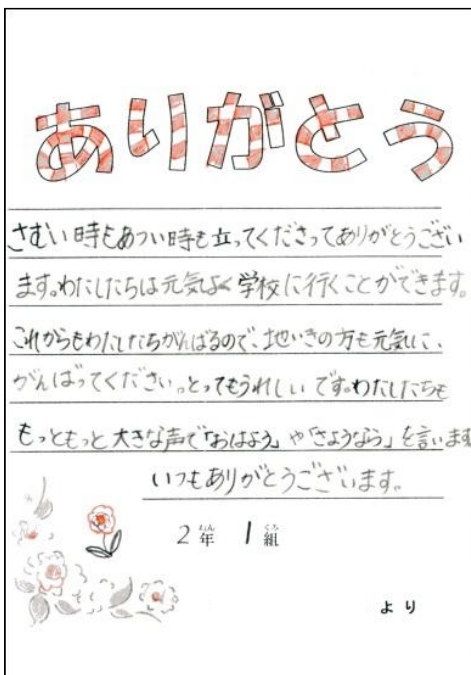 ありがとう
さむい時もあつい時も立ってくださってありがとうござい
ます。わたしたちは元気よく学校に行くことができます。
これからもわたしたちがんばるので、地いきの方も元気に、
がんばってください。とってもうれしいです。わたしたちも
もっともっと大きな声で「おはよう」や「さようなら」を言います
いつもありがとうございます。
2年ねん 1組くみ
より